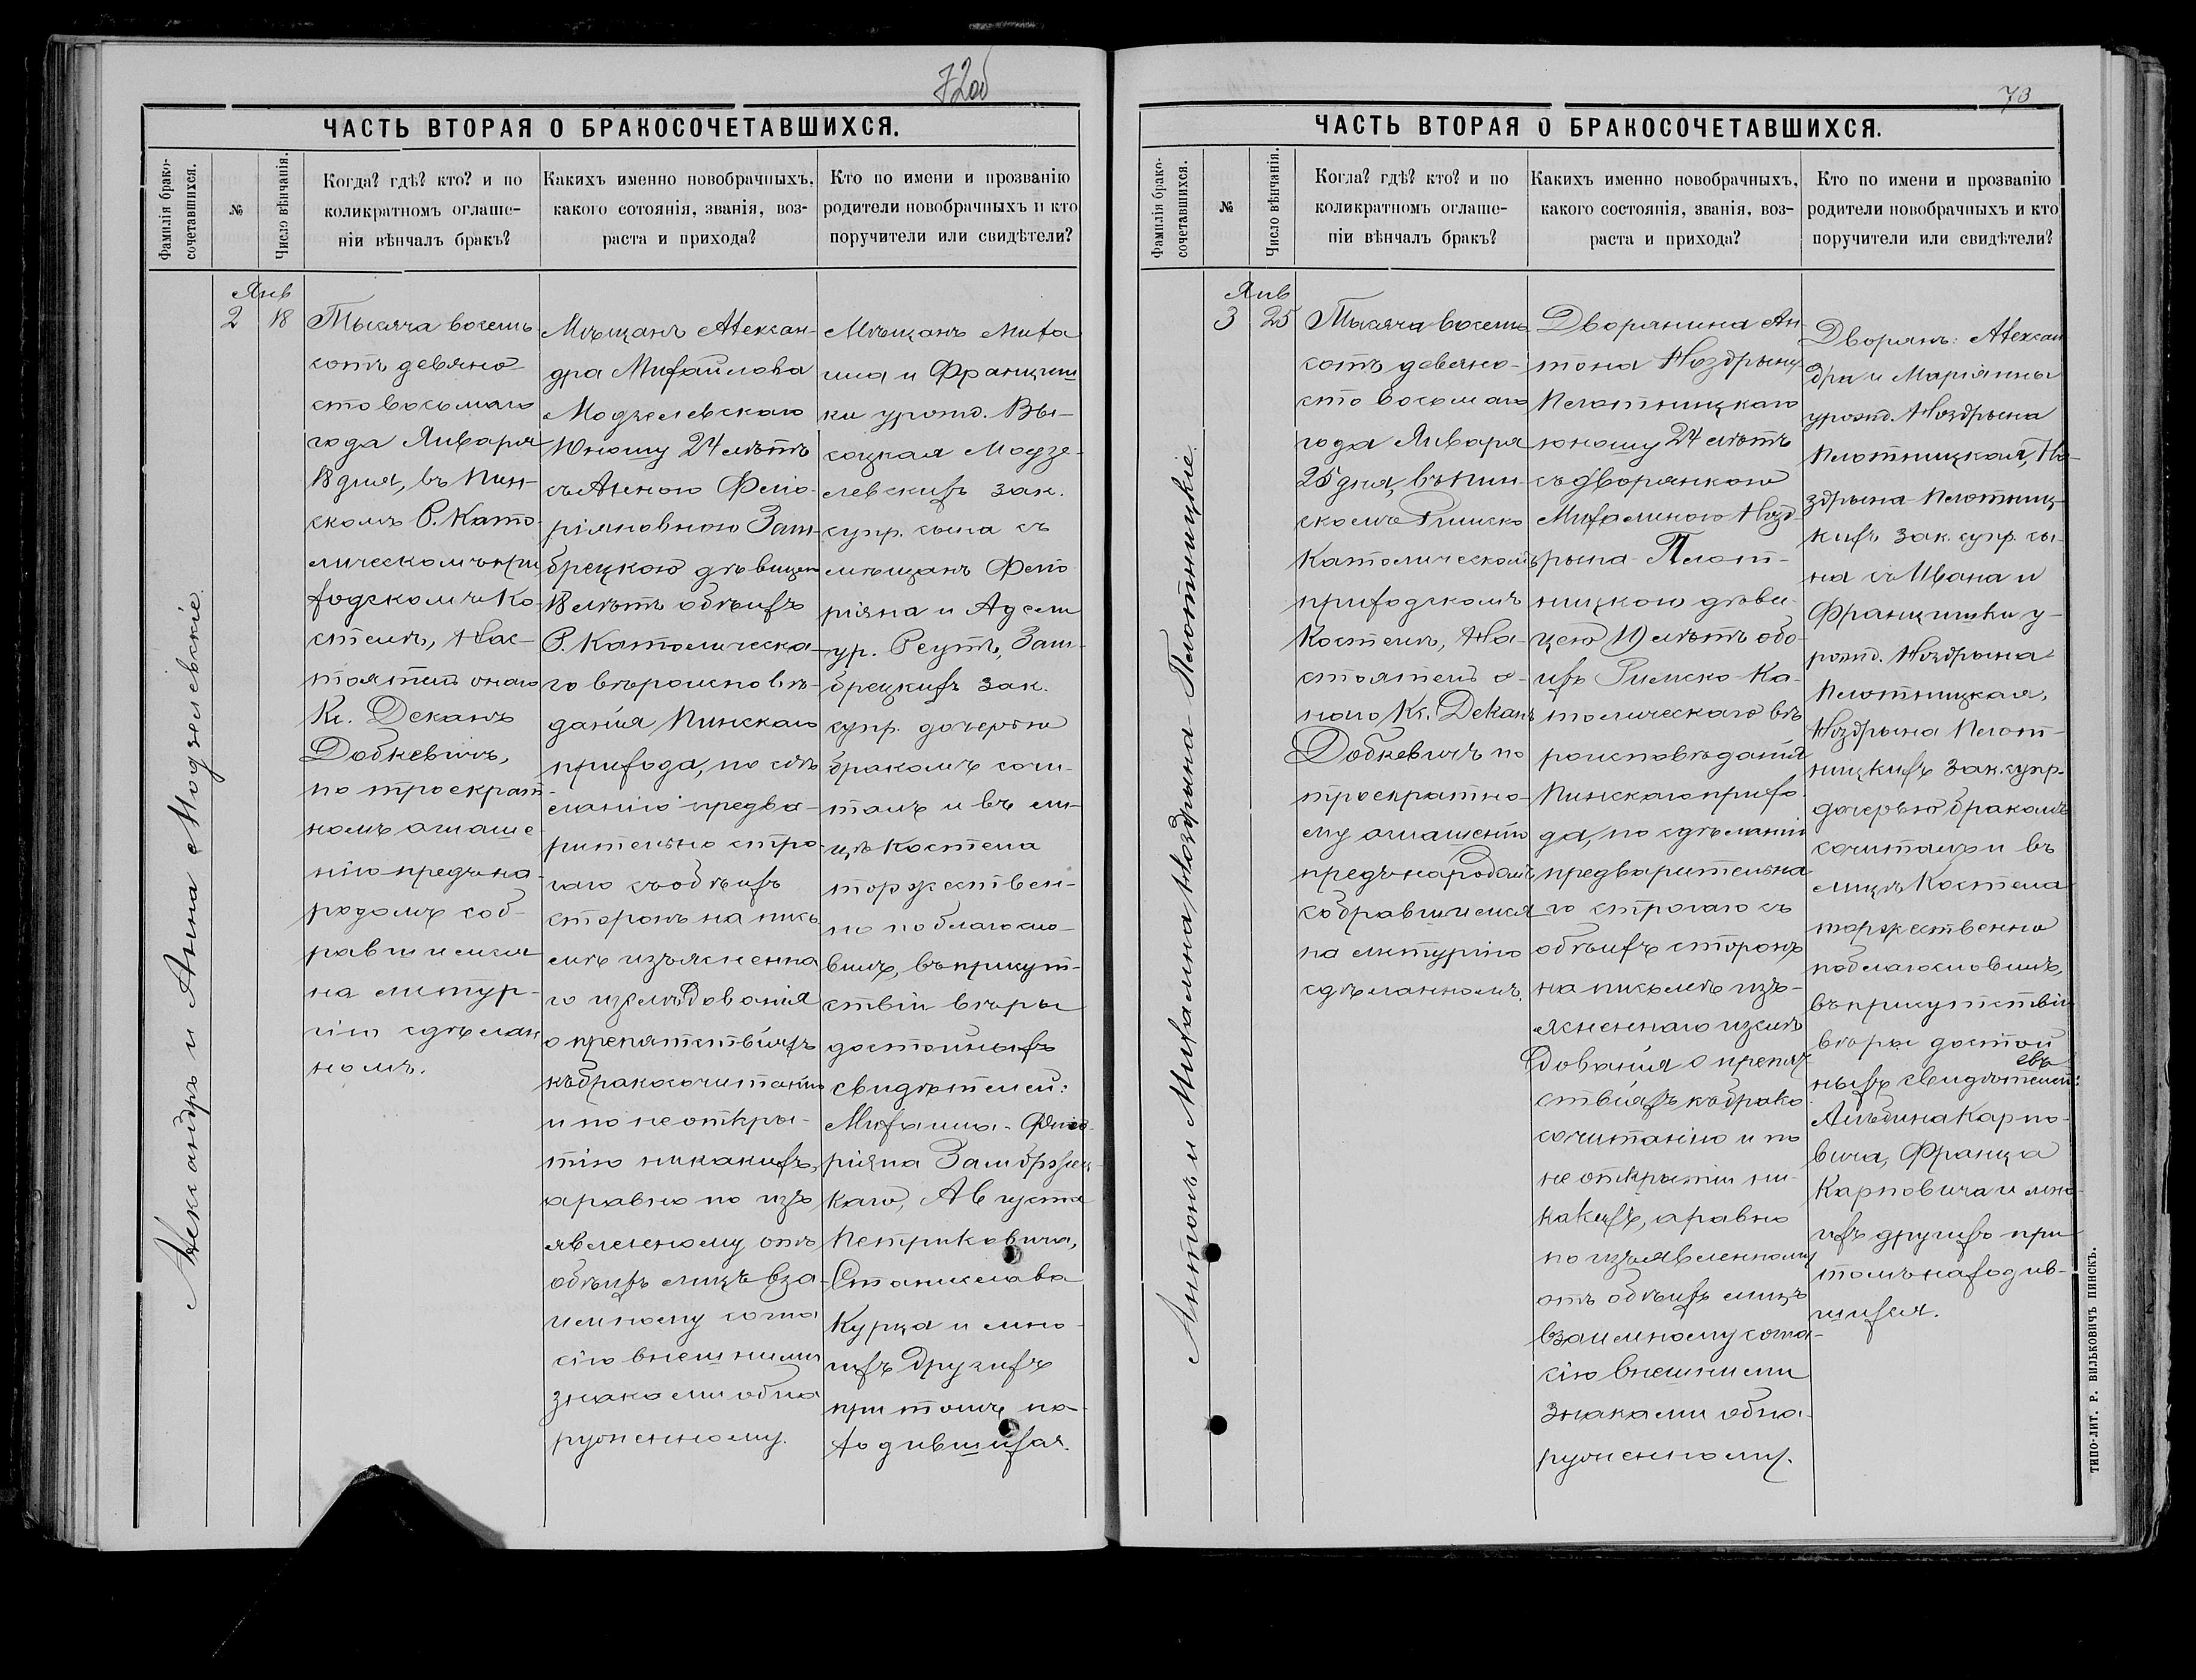 72об
ЧАСТЬ ВТОРАЯ О БРАКОСОЧЕТАВШИХСЯ.
Фамилія брако-
сочетавшихся.
№
Число вѣнчанія.
Когда? гдѣ? кто? и по
коликратномъ оглаше-
ніи вѣнчалъ бракъ?
Какихъ именно новобрачныхъ,
какого сотоянія, званія, воз-
раста и прихода?
Кто по имени и прозванію
родители новобрачныхъ и кто
поручители или свидѣтели?
Александръ и Анна Модзелевскіе.
Янв
2 18
Тысяча восемь
сотъ девяно-
сто восьмаго
года Января
18 дня, въ Пин-
скомъ Р. Като-
лическомъ при
ходскомъ Ко-
стелѣ, Нас-
тоятель онаго
Кс. Деканъ
Добкевичъ,
по троекрат-
номъ оглаше
нію предъ на-
родомъ соб-
равшимся
на литур-
гію сдѣлан
номъ.
Мѣщанъ Алексан-
дра Михайлова
Модзелевскаго
Юношу 24 лѣтъ
съ Анною Фло-
ріяновною Зам-
брецкою дѣвицею
18 лѣтъ обѣихъ
Р. Католическа-
го вѣроисповѣ-
данія Пинскаго
прихода, по сдѣ
ланію предва-
рительно стро-
гаго съ обѣихъ
сторонъ на пись
мѣ изъясненна
го изслѣдованія
о препятствіяхъ
къ бракосочитанію
и по не откры-
тію никакихъ,
а равно по изъ
явленному отъ
обѣихъ лицъ вза-
имному согла
сію внешними
знаками обна
руженному.
Мѣщанъ Миха
ила и Францыш
ки урожд. Вы-
соцкая Модзе-
левскихъ зак.
супр. сына съ
мѣщанъ Фло
ріяна и Адели
ур. Реутъ, Зам-
брецкихъ зак.
супр. дочерью
бракомъ сочи-
талъ и въ ли-
цѣ костела
торжествен-
но поблагосло-
вилъ, въ присут-
ствіи вѣры
достойныхъ
свидѣтелей:
Михаила Фло-
ріяна Замбржец-
каго, Августа
Петриковича,
Станислава
Курца и мно-
гихъ другихъ
при томъ на-
ходившихся.
73
ЧАСТЬ ВТОРАЯ О БРАКОСОЧЕТАВШИХСЯ.
Фамилія брако-
сочетавшихся.
№
Число вѣнчанія.
Когда? гдѣ? кто? и по
коликратномъ оглаше-
ніи вѣнчалъ бракъ?
Какихъ именно новобрачныхъ,
какого состоянія, званія, воз-
раста и прихода?
Кто по имени и прозванію
родители новобрачныхъ и кто
поручители или свидѣтели?
Антонъ и Михалина Ноздрына-Плотницкіе.
Янв
3 25
Тысяча восемь
сотъ девяно-
сто восьмаго
года Января
25 дня, въ Пин-
скомъ Римско
Католическомъ
приходскомъ
Костелѣ, На-
стоятель о-
наго Кс. Деканъ
Добкевичъ по
троекратно-
му оглашенію
предъ народомъ
собравшимся
на литургію
сдѣланномъ.
Дворянина Ан-
тона Ноздрыну
Плотницкаго
юношу 24 лѣтъ
съ дворянкою
Михалиною Нозд-
рына-Плот-
ницкою дѣви-
цею 19 лѣтъ обо-
ихъ Римско-Ка-
толическаго вѣ
роисповѣданія
Пинскаго прихо
да, по сдѣланіи
предварительна
го строгаго съ
обѣихъ сторонъ
на письмѣ изъ-
ясненнаго изслѣ
дованія о препят
ствіяхъ къ брако
сочитанію и по
не открытіи ни-
какихъ, а равно
по изъявленному
отъ обѣихъ лицъ
взаимному согла-
сію внешними
знаками обна-
руженному.
Дворянъ: Алексан
дра и Маріанны
урожд. Ноздрына
Плотницкая, Но-
здрына-Плотниц-
кихъ зак. супр. сы-
на съ Ивана и
Францишки у-
рожд. Ноздрына
Плотницкая,
Ноздрына Плот-
ницкихъ зак. супр.
дочерью бракомъ
сочиталъ и въ
лицѣ Костела
торжественно
поблагословилъ,
въ присутствіи
вѣры достой
ныхъ свидѣтелей:
Альбина Карпо-
вича, Франца
Карповича и мно-
гихъ другихъ при
томъ находив-
шихся.
ТИПО-ЛИТ. Р. ВИЛЬКОВИЧЪ ПИНСКЪ.